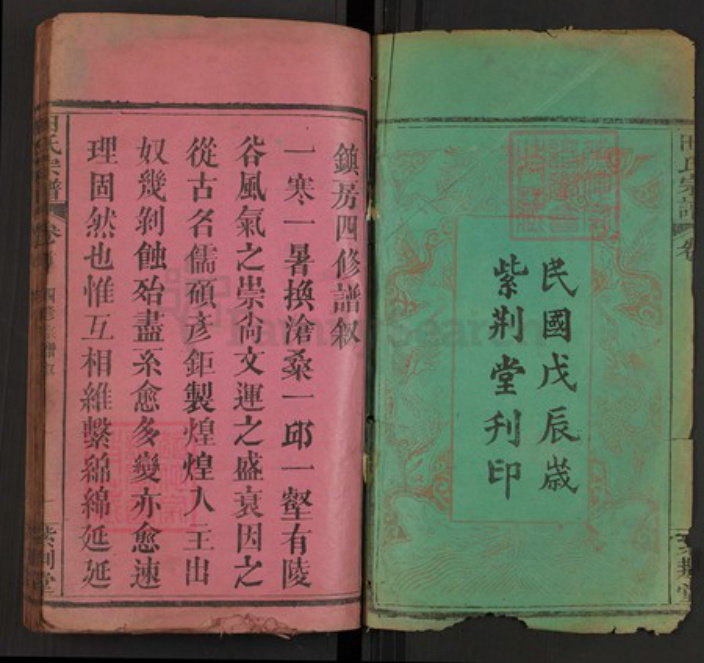 民國戊辰歲
紫荆堂刋印
田氏宗譜
卷
紫荆堂
鎮房四修譜叙
一寒一暑換滄桑一邱一壑有陵
谷風氣之崇尚文運之盛衰因之
從古名儒碩彥鉅製煌煌人主出
奴幾剝蝕殆盡系愈多變亦愈速
理固然也惟互相維繫綿綿延延
田氏宗譜
卷首
紫荆堂
FamilySearch